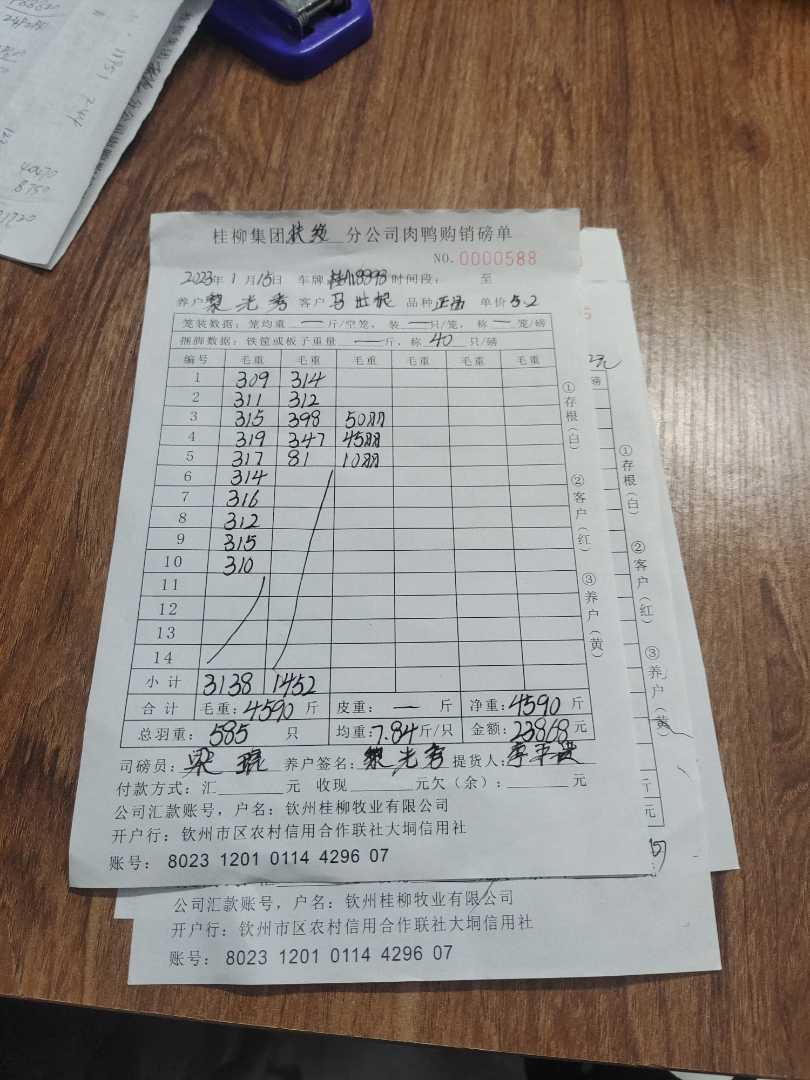 桂柳集团扶绥分公司肉鸭购销磅单
NO.0000588
2023年1月15日 车牌 8898 时间段： 至
养户 黎光秀 客户 马世妮 品种 正西 单价 5.2
笼装数据：笼均重 — 斤/空笼，装 — 只/笼，称 — 笼/磅
捆脚数据：铁筐或板子重量 — 斤，称 40 只/磅
编号 毛重 毛重 毛重 毛重 毛重 毛重
1 309 314
2 311 312
3 315 398 50
4 319 347 45
5 317 81 10
6 314
7 316
8 312
9 315
10 310
11
12
13
14
小计 3138 1452
合计 毛重：4590 斤 皮重：— 斤 净重：4590 斤
总羽重：585 只 均重：7.84 斤/只 金额：23868 元
司磅员：梁 养户签名：黎光秀 提货人：李
付款方式：汇 元 收现 元欠（余）： 元
公司汇款账号，户名：钦州桂柳牧业有限公司
开户行：钦州市区农村信用合作联社大垌信用社
账号：8023 1201 0114 4296 07
①存根（白） ②客户（红） ③养户（黄）
①存根（白） ②客户（红） ③养户（黄）
公司汇款账号，户名：钦州桂柳牧业有限公司
开户行：钦州市区农村信用合作联社大垌信用社
账号：8023 1201 0114 4296 07